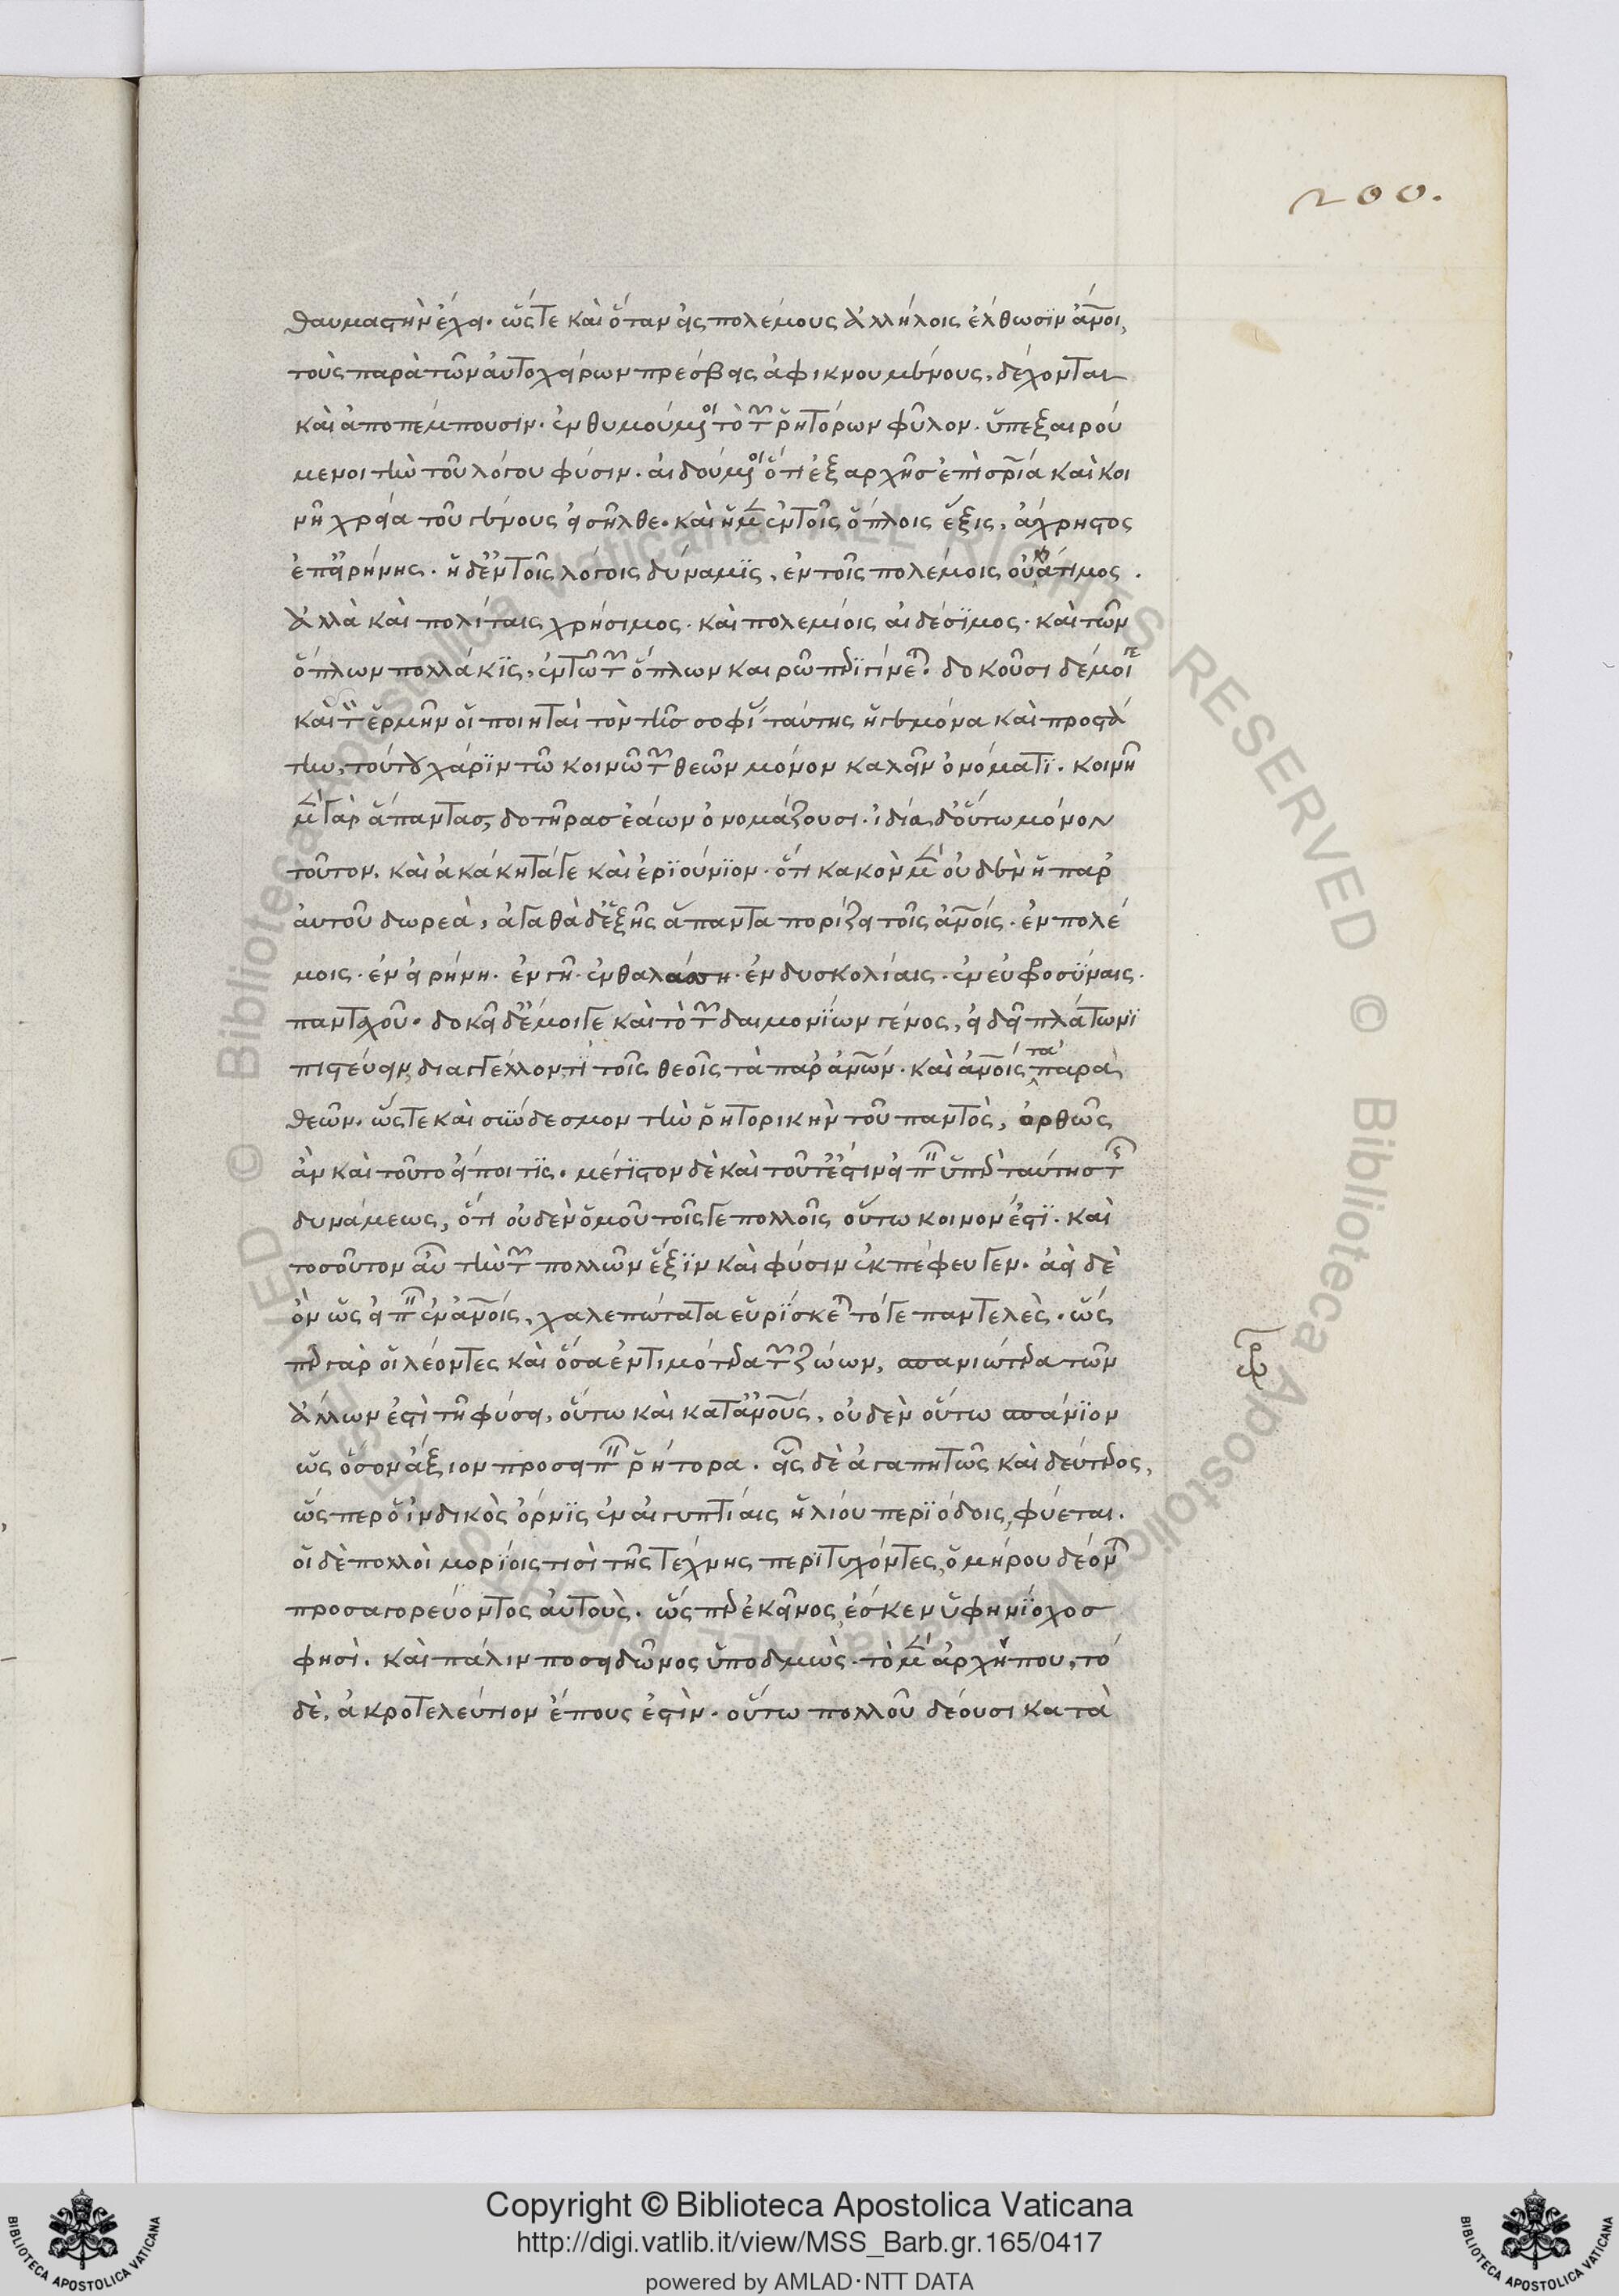 200.
θαυμαστὴν ἔχει. ὥστε καὶ ὅταν εἰς πολέμους ἀλλήλοις ἔλθωσιν ἄνοι,
τοὺς παρὰ τῶν αὐτοχείρων πρέσβεις ἀφικνουμένους, δέχονται
καὶ ἀποπέμπουσιν. ἐνθυμούμενοι τὸ τῶν ῥητόρων φῦλον. ὑπεξαιρού
μενοι τὴν τοῦ λόγου φύσιν. αἰδούμενοι ὅτι ἐξ αρχῆς ἐπὶ σρία καὶ κοι
νῇ χρεία τοῦ γένους εἰσῆλθε. καὶ ἡ μὲν ἐν τοῖς ὅπλοις ἕξις, ἄχρηστος
ἐπ' εἰρήνης. ἡ δ' ἐν τοῖς λόγοις δύναμις, ἐν τοῖς πολέμοις οὐκ ἄτιμος.
ἀλλὰ καὶ πολίταις χρήσιμος. καὶ πολεμίοις αἰδέσιμος. καὶ τῶν
ὅπλων πολλάκις, ἐν τῷ τῶν ὅπλων καιρῷ περιγίνεται. δοκοῦσι δέ μοί γε
καὶ τὸν ἑρμῆν οἱ ποιηταὶ τὸν τῆς σοφίας ταύτης ἡγεμόνα καὶ προστά
την, τούτου χάριν τῷ κοινῷ τῶν θεῶν μόνον καλεῖν ὀνόματι. κοινῇ
μὲν γὰρ ἅπαντας, δοτῆρας ἐάων ὀνομάζουσι. ἰδία δ' οὕτω μόνον
τοῦτον. καὶ ἀκάκητά γε καὶ ἐριούνιον. ὅτι κακὸν μὲν οὐδὲν ἡ παρ'
αὐτοῦ δωρεὰ, ἀγαθὰ δ' ἑξῆς ἅπαντα πορίζει τοῖς ἀνοίς. ἐν πολέ
μοις. ἐν εἰρήνη. ἐν γῆ. ἐν θαλάσση. ἐν δυσκολίαις. ἐν εὐφροσύναις.
πανταχοῦ. δοκεῖ δ' ἔμοιγε καὶ τὸ τῶν δαιμονίων γένος, εἰ δεῖ πλάτωνι
πιστεύειν, διαγγέλλον τι τοῖς θεοῖς τὰ παρ' ἀνών. καὶ ἀνοίς τὰ παρὰ
θεῶν. ὥστε καὶ σύνδεσμον τὴν ῥητορικὴν τοῦ παντὸς, ὀρθῶς
ἂν καὶ τοῦτο εἴποι τις. μέγιστον δὲ καὶ τοῦτ' ἔστιν εἰπεῖν ὑπὲρ ταύτης τῆς
δυνάμεως, ὅτι οὐδὲν ὁμοῦ τοῖς γε πολλοῖς οὕτω κοινον ἔστι. καὶ
τοσοῦτον αὖ τὴν τῶν πολλῶν ἕξιν καὶ φύσιν ἐκπέφευγεν. ἀεὶ δὲ
ὂν ὡς εἰπεῖν ἐν ἀνοίς, χαλεπώτατα εὑρίσκεται τό γε παντελὲς. ὥς
περ γὰρ οἱ λέοντες καὶ ὅσα ἐντιμότερα τῶν ζώων, σπανιώτερα τῶν
ἄλλων ἐστὶ τῆ φύσει, οὕτω καὶ κατ' ἀνούς, οὐδὲν οὕτω σπάνιον
ὡς ὅσον ἄξιον προσειπεῖν ῥήτορα. εἷς δὲ ἀγαπητῶς καὶ δεύτερος,
ὥσπερ ὁ ἰνδικὸς ὄρνις ἐν αἰγυπτίαις ἡλίου περιόδοις, φύεται.
οἱ δὲ πολλοὶ μορίοις τισὶ τῆς τέχνης περιτυχόντες, ὁμήρου δέονται
προσαγορεύοντος αὐτοὺς. ὥς περ ἐκεῖνος, ἔσκεν ὑφηνίοχος
φησὶ. καὶ πάλιν ποσειδῶνος ὑποδμὼς. τὸ μὲν ἀρχή που, τὸ
δὲ, ἀκροτελεύτιον ἔπους ἐστὶν. οὕτω πολλοῦ δέουσι κατὰ